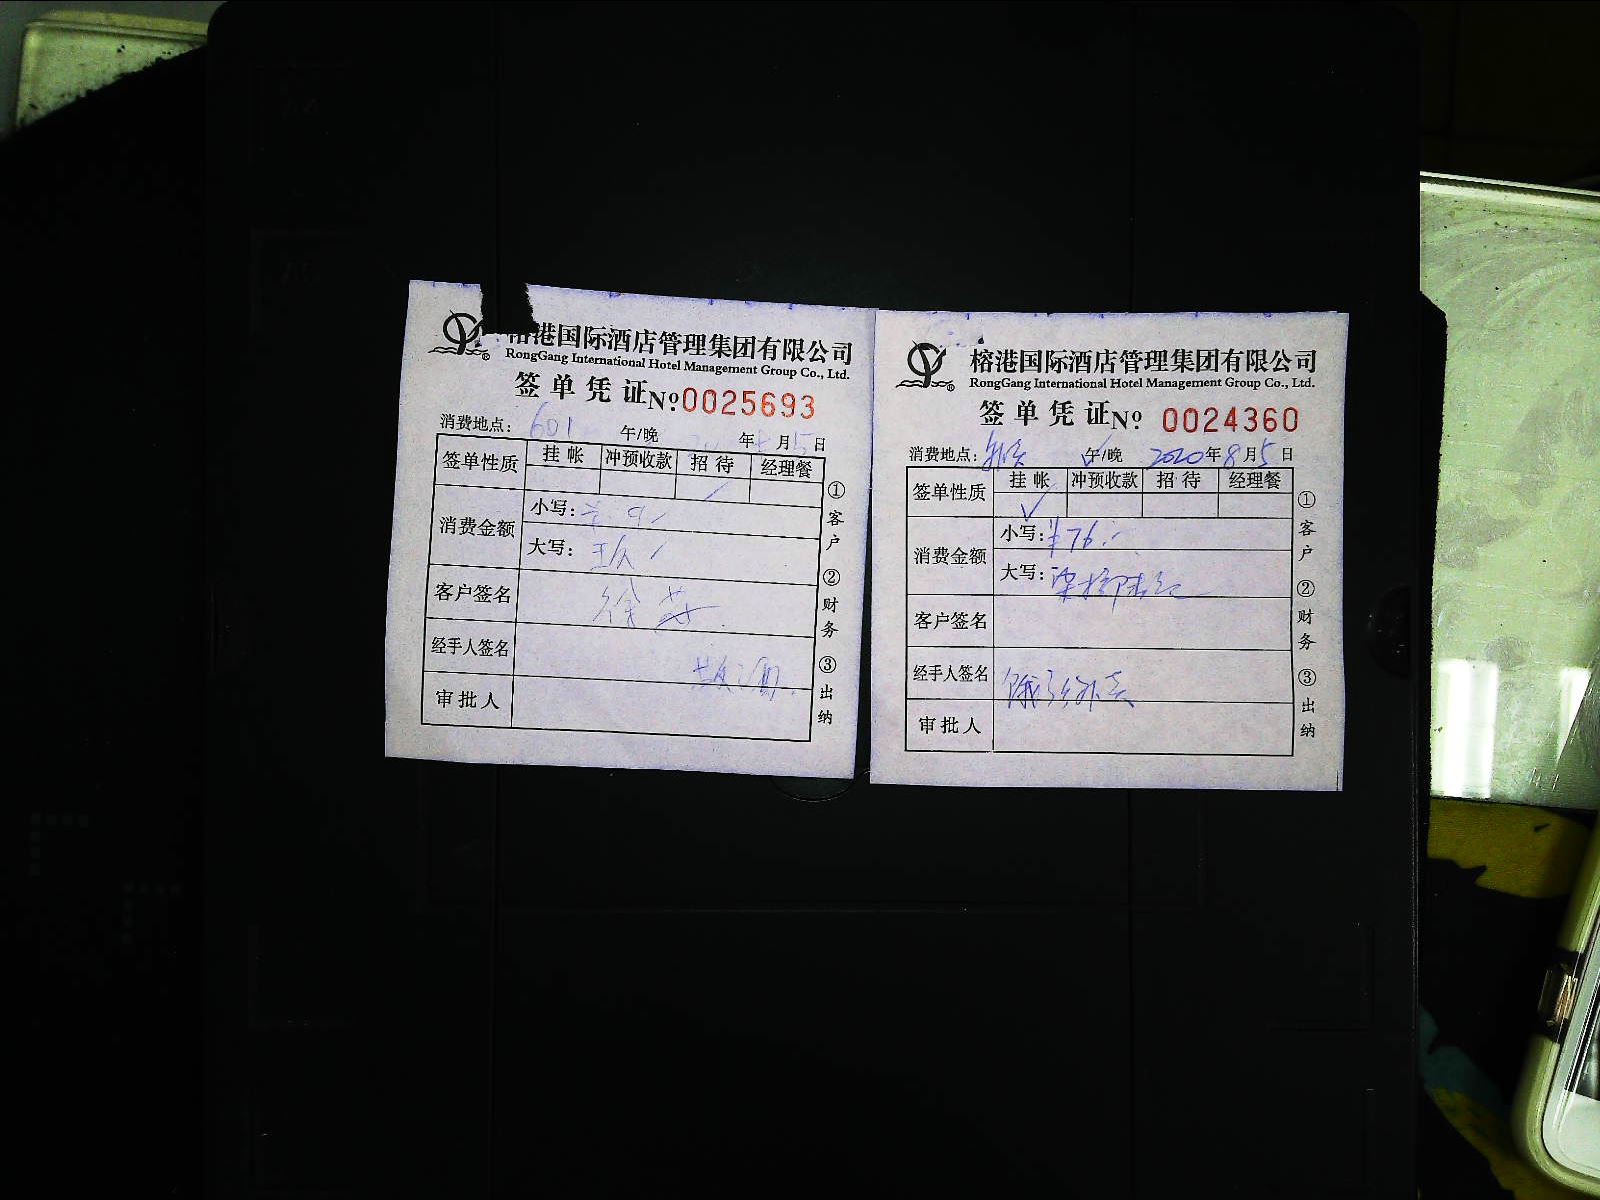 榕港国际酒店管理集团有限公司
RongGang International Hotel Management Group Co., Ltd.
签单凭证 Nº 0025693
消费地点：601 午/晚 年 月5日
签单性质 挂帐 冲预收款 招待 经理餐
消费金额 小写：
大写：
客户签名 徐
经手人签名
审批人
①客户 ②财务 ③出纳
榕港国际酒店管理集团有限公司
RongGang International Hotel Management Group Co., Ltd.
签单凭证 Nº 0024360
消费地点： 午/晚 2020年8月5日
签单性质 挂帐 冲预收款 招待 经理餐
消费金额 小写：¥76.-
大写：
客户签名
经手人签名
审批人
①客户 ②财务 ③出纳